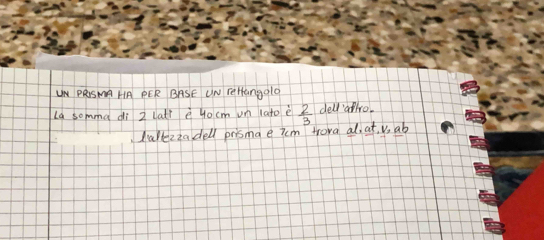 UN PRISMA HA PER BASE UN rettangolo
la somma di 2 lati è 40cm un lato è 2/3 dell'altro.
. l'altezza dell prisma è 7cm trova al. at. v. ab